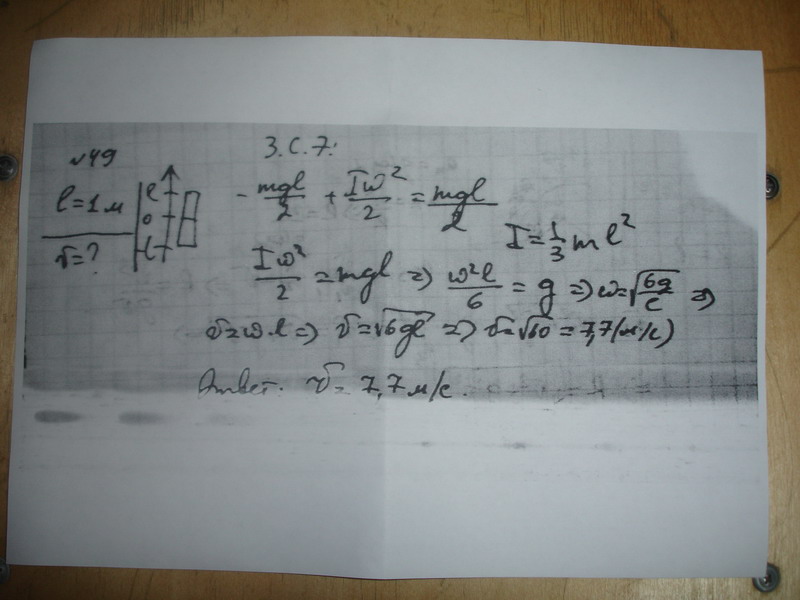 №49
З.С.Э.:
l=1м
v=?
l
0
-l
- mgl/2 + Iω²/2 = mgl/2
I=1/3 ml²
Iω²/2 = mgl => ω²l/6 = g => ω=√(6g/l) =>
v=ω·l => v=√6gl => v=√60 = 7,7(м/с)
Ответ: v= 7,7 м/с.